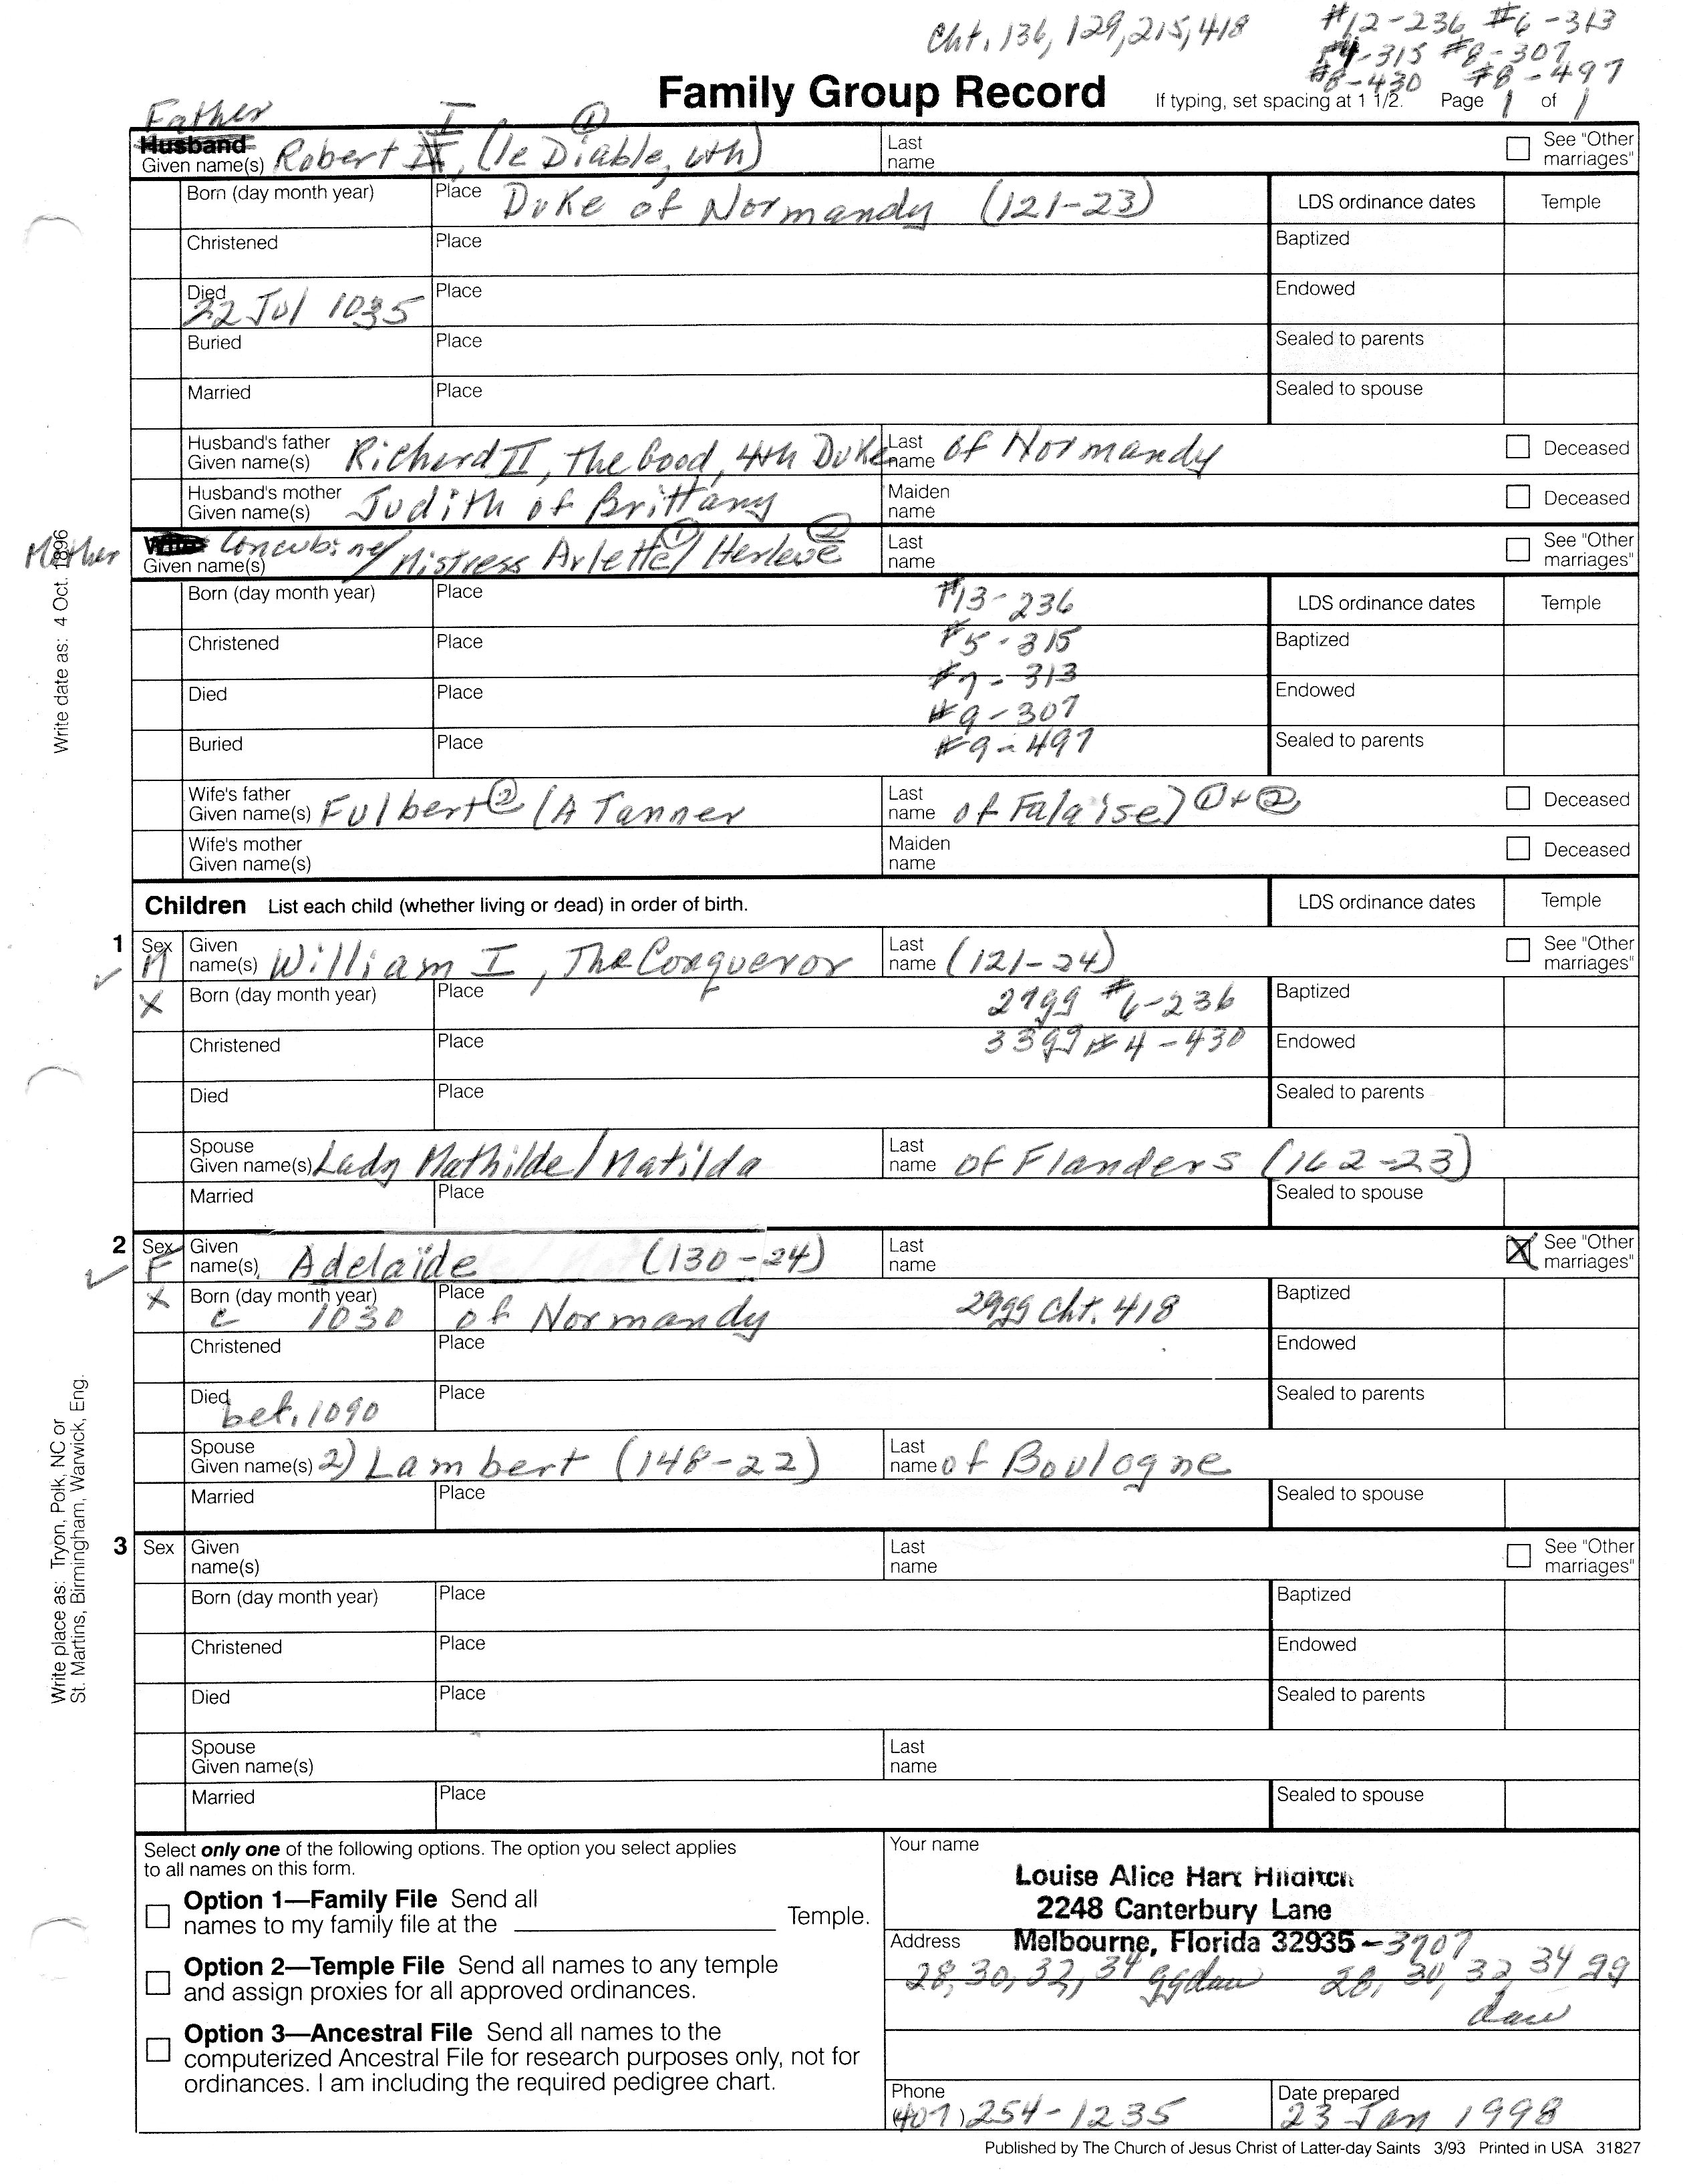 Cht. 136, 129, 215, 418 #12-236 #6-313
#4-315 #8-307
#8-430 #8-497
Family Group Record If typing, set spacing at 1 1/2. Page 1 of 1
Father I ①
Husband
Given name(s) Robert II, (le Diable, 6th) Last name See "Other marriages"
Born (day month year) Place Duke of Normandy (121-23) LDS ordinance dates Temple
Christened Place Baptized
Died 22 Jul 1035 Place Endowed
Buried Place Sealed to parents
Married Place Sealed to spouse
Husband's father Given name(s) Richard II, The Good, 4th Duke Last name of Normandy Deceased
Husband's mother Given name(s) Judith of Brittany Maiden name Deceased
Mother Wife Concubine/ ① ②
Given name(s) Mistress Arlette/Herleve Last name See "Other marriages"
Born (day month year) Place #13-236 LDS ordinance dates Temple
Christened Place #5-315 Baptized
#7-313
Died Place Endowed
#9-307
Buried Place #9-497 Sealed to parents
Wife's father Given name(s) Fulbert ② (A Tanner Last name of Falaise) ①+② Deceased
Wife's mother Given name(s) Maiden name Deceased
Children List each child (whether living or dead) in order of birth. LDS ordinance dates Temple
1 Sex M Given name(s) William I, The Conqueror Last name (121-24) See "Other marriages"
X Born (day month year) Place 27gg #6-236 Baptized
Christened Place 33gg #4-430 Endowed
Died Place Sealed to parents
Spouse Given name(s) Lady Mathilde/Matilda Last name of Flanders (162-23)
Married Place Sealed to spouse
2 Sex F Given name(s) Adelaïde (130-24) Last name X See "Other marriages"
X Born (day month year) c 1030 Place of Normandy 29gg Cht. 418 Baptized
Christened Place Endowed
Died bef. 1090 Place Sealed to parents
Spouse Given name(s) 2) Lambert (148-22) Last name of Boulogne
Married Place Sealed to spouse
3 Sex Given name(s) Last name See "Other marriages"
Born (day month year) Place Baptized
Christened Place Endowed
Died Place Sealed to parents
Spouse Given name(s) Last name
Married Place Sealed to spouse
Select only one of the following options. The option you select applies
to all names on this form.
Option 1—Family File Send all
names to my family file at the Temple.
Option 2—Temple File Send all names to any temple
and assign proxies for all approved ordinances.
Option 3—Ancestral File Send all names to the
computerized Ancestral File for research purposes only, not for
ordinances. I am including the required pedigree chart.
Your name
Louise Alice Hart Hilditch
2248 Canterbury Lane
Address Melbourne, Florida 32935-3707
28, 30, 32, 34 ggdau 28, 30, 32, 34 gg
dau
Phone (407) 254-1235
Date prepared 23 Jan 1998
Published by The Church of Jesus Christ of Latter-day Saints 3/93 Printed in USA 31827
Write date as: 4 Oct. 1896
Write place as: Tryon, Polk, NC or
St. Martins, Birmingham, Warwick, Eng.